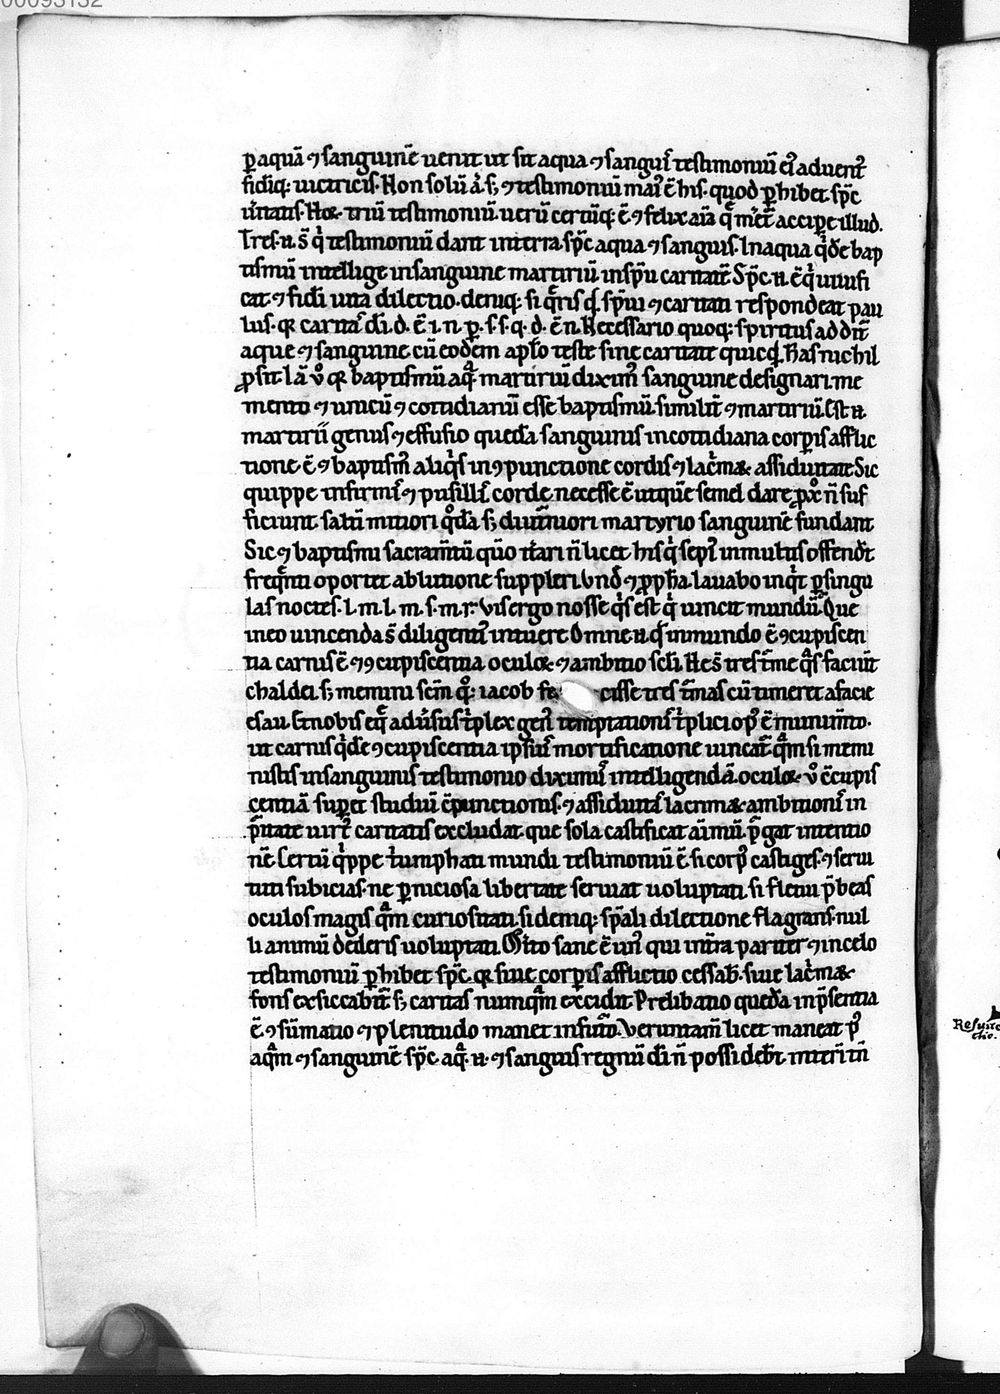 00093132
p aquā ⁊ sanguinē uenit ut sit aqua ⁊ sanguis testimoniū ei⁹ aduent⁹
fidiq; uictricis. Non solū aū s; ⁊ testimoniū mai⁹ ē his. quod phibet spc̄
ueritatis. Hoꝝ triū testimoniū uerū certūq; ē ⁊ felix aīa q̄ meret accipe illud.
Tres. n. s̄ q̇ testimoniū dant in terra. spc̄ aqua ⁊ sanguis. In aqua q̇de bap
tismū intellige in sanguine martiriū in spū caritatē Spc̄. n. ē q̇ uiuifi
cat ⁊ fidei uita dilectio. deniq; si q̄ris qd spūi ⁊ caritati respondeat pau
lus. q̄ caritas dī. d. ē i. n. p. s. s. q. d. ē. n. Necessario quoq; spiritus additr̄
aque ⁊ sanguine. cū eodem aplo teste sine caritate quicqd has nichil
ꝓsit. lā uº q̄ baptismū aq̄ martiriū diximꝰ sanguine designari. me
mento ⁊ unicū ⁊ cottidianū esse baptismū. similit̄ ⁊ martiriū. Est. n.
martirii genus ⁊ effusio queda sanguinis in cottidiana corpis afflic
tione. ē ⁊ baptism̄ aliq̇s in ꝯpunctione cordis ⁊ lac̄maꝝ assiduitate Sic
quippe infirmis ⁊ pusillis corde necesse ē ut que semel dare ꝓ xº n̄ suf
ficiunt. saltē mitiori qºdā s; diut̄niori martyrio sanguinē fundant
Sic ⁊ baptismi sacram̄tū quō it̄ari n̄ licet. his q̇ sepiꝰ in multis offendt̄
freq̄nti oportet ablutione suppleri. Vnd ⁊ ꝓpha. lauabo inq̇t p singu
las noctes. l. m. l. m. s. m. r. Vis ergo nosse q̇s est q̇ uincit mundū. Que
in eo uincenda s̄ diligentiꝰ intuere. Omne. n. qd in mundo ē ꝯcupiscen
tia carnis ē ⁊ ꝯcupiscentia oculoꝝ ⁊ ambitio scli. He s̄ tres t̄me q̄s faciūt
chaldei. s; memini scm̄ qºq; iacob fe cisse tres t̄mas cū timeret a facie
esau. Et nobis eq̄ aduersus t̄plex genꝰ temptationis t̄plici opꝰ ē munim̄to.
ut carnis q̇de ꝯcupiscentia ipsiꝰ mortificatione uincat̄. q̄m si memi
nistis in sanguinis testimonio diximꝰ intelligendā. oculoꝝ uº ꝯcupis
centiā supet studiū ꝯpunctionis. ⁊ assiduitas lacrimaꝝ. ambitionis in
p̄itate uirtꝰ caritatis excludat. que sola castificat aīmū. p̄gat intentio
nē. Certū q̇ppe t̄umphati mundi testimoniū ē. si corpꝰ castiges. ⁊ serui
tuti subicias. ne pniciosa libertate seruiat uoluptati. si fletui p̄beas
oculos magis q̄m curiositati. si deniq; sp̄ali dilectione flagrans. nul
li animū dederis uoluptati. Mito sane ē unꝰ qui in t̄ra pariter ⁊ in celo
testimoniū phibet spc̄. q̄ siue corpis afflictio cessab̄. siue lac̄maꝝ
fons exsiccabit̄. s; caritas numq̄m excidit Prelibatio queda in p̄sentia
ē. ꝯsūmatio ⁊ plenitudo manet in futꝰo. Veruntam̄ licet maneat pꝰ
aq̄m ⁊ sanguinē spc̄. aq̄. n. ⁊ sanguis regnū dī n̄ possidebt̄. interī tn̄